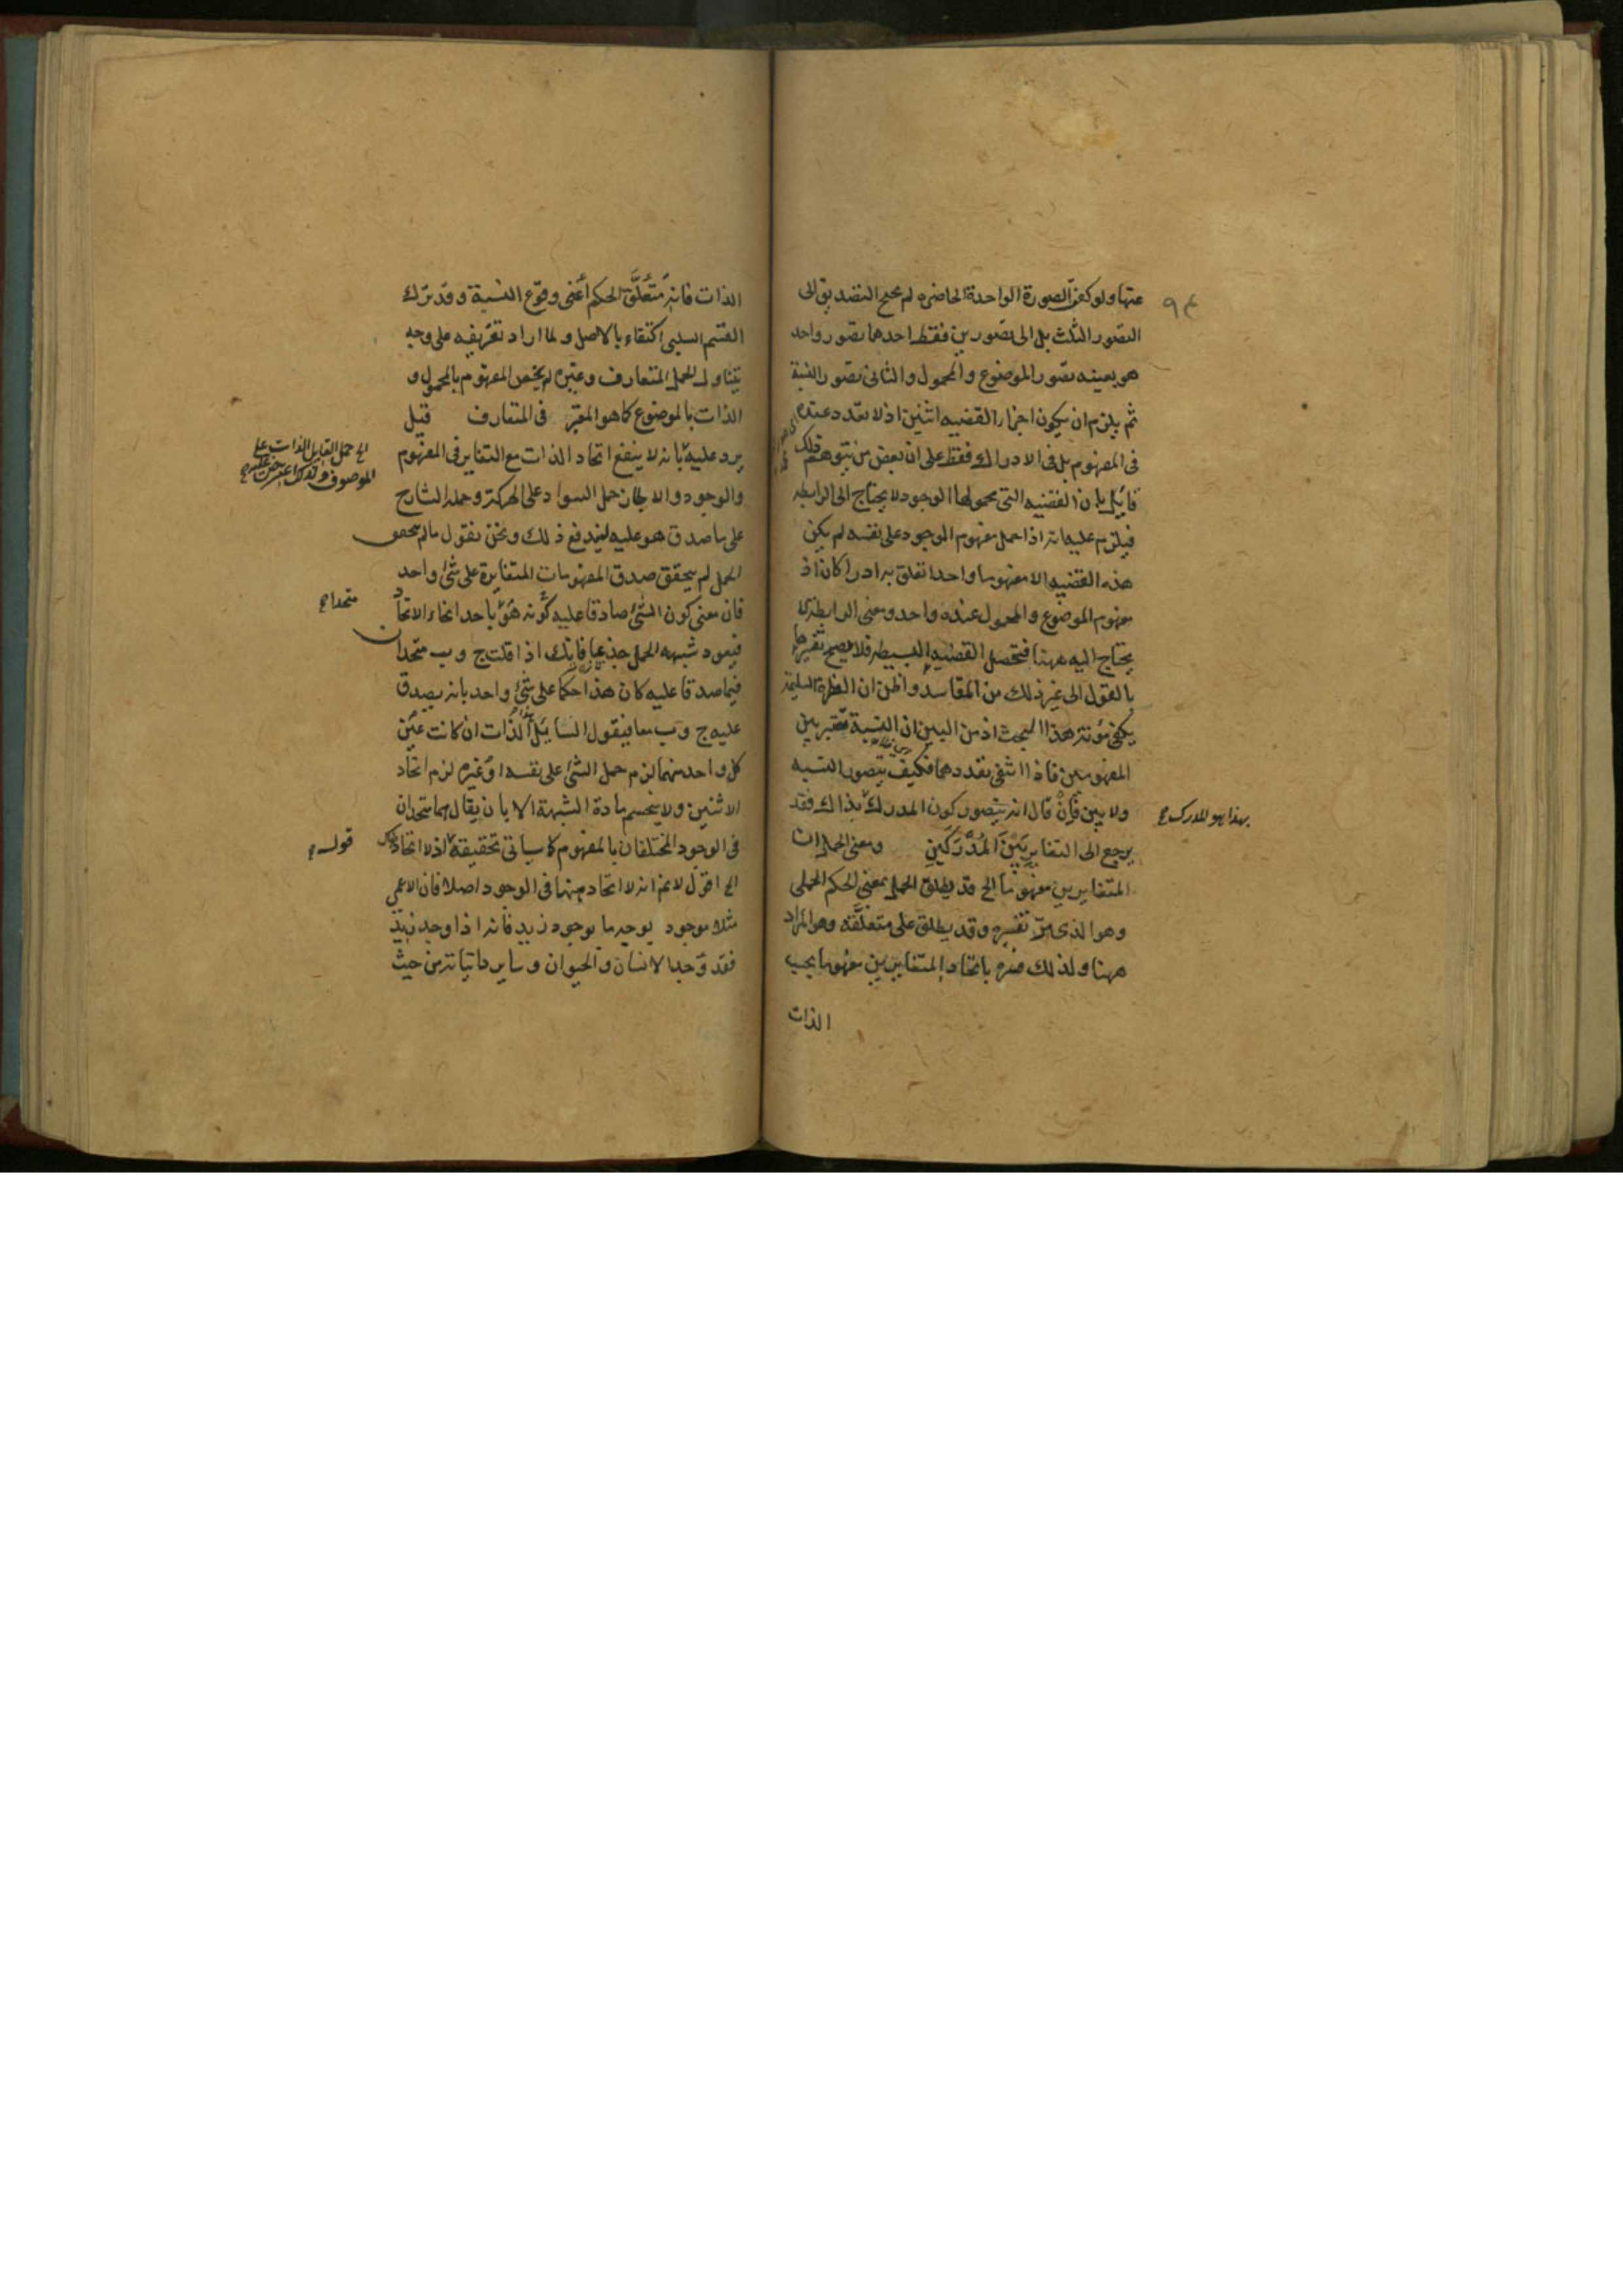 عنها ولو كفى الصورة الواحدة الحاضره لم يحتج التصديق الى
التصور الثلث بل الى تصورين فقط احدها تصور واحد
هو بعينه تصور الموضوع والمحمول والثانى تصور النسبة
ثم يلزم ان يكون اجزاء القضيه اثنين اذ لا تعدد عنده
فى المفهوم بل فى الادراك فقط على ان بعض من يتوهم ذلك
قائل بان القضيه التى محمولها الوجود لا يحتاج الى الرابطه
فيلزم عليه انه اذا حمل مفهوم الموجود على نفسه لم يكن
هذه القضيه الا مفهوما واحدا تعلق به ادراكان اذ
مفهوم الموضوع والمحمول عنده واحد ومعنى الرابطة لا
يحتاج اليه ههنا فتحصل القضيه البسيطه فلا يصح تفسيرها
بالقول الى غير ذلك من المفاسد واظن ان الفطرة السليمة
يكفى مؤنة هذا البحث اذ من البين ان النسبة تعتبر بين
المفهومين فاذا انتفى تعددهما فكيف يتصور النسبه
ولا بين فان قال انه يتصور كون المدرك بذاك فقد
بهذا هو المدرك صح
يرجع الى التغاير بين المُدْرَكَين ومعنى الحمل ان
المتغايرين مفهوما الخ قد يطلق الحمل بمعنى الحكم الحملى
وهو الذى مرّ تفسيره وقد يطلق على متعلقه وهو المراد
ههنا ولذلك فسره باتحاد المتغايرين مفهوما بحسب
الذات
الذات فانه مُتعلَّق الحكم اعنى وقوع النسبة وقد ترك
القسم السلبى اكتفاء بالاصل ولما اراد تعريفه على وجه
يتناول الحمل المتعارف وغيره لم يخص المفهوم بالمحمول و
الذات بالموضوع كما هو المعتبر فى المتعارف قيل
يرد عليه بانه لا ينفع اتحاد الذات مع التغاير فى المفهوم
والوجود والا لجاز حمل السواد على الحركة وحمله الشارح
على ما صدق هو عليه ليندفع ذلك ونحن نقول ما لم يتحقق
الحمل لم يتحقق صدق المفهومات المتغايرة على شئ واحد
فان معنى كون الشئ صادقا عليه كونه هو باحد انحاء الاتحاد
متحدا صح
فيعود شبهه الحمل جذعا فانك اذا قلت ج و ب متحدان
فيما صدقا عليه كان هذا حكما على شئ واحد بانه يصدق
عليه ج و ب معا فيقول السائل الذات ان كانت عين
كل واحد منهما لزم حمل الشئ على نفسه او غيره لزم اتحاد
الاثنين ولا ينحسم مادة الشبهة الا بان يقال هما متحدان
فى الوجود المختلفان بالمفهوم كما سيأتى تحقيقه اذ لا اتحاد
قوله صح
الخ اقول لا نم انه لا اتحاد بينهما فى الوجود اصلا فان الاعمى
مثلا موجود بوجه ما بوجود زيد فانه اذا وجد زيد
فقد وجد الانسان والحيوان وساير ذاتياته من حيث